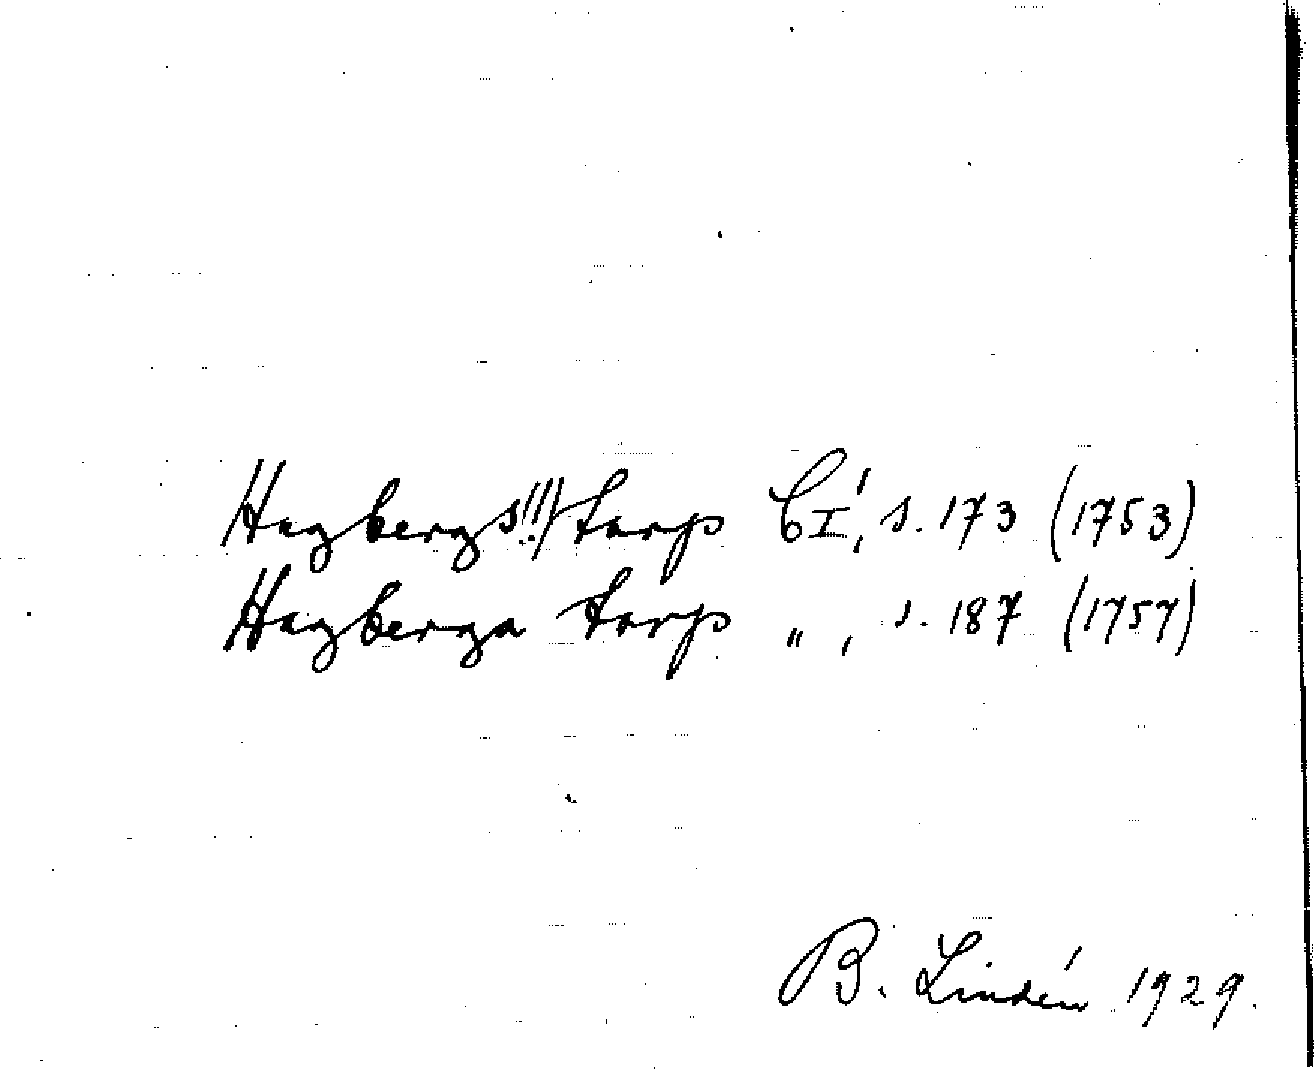 Hagbergs!!/torp CI, s. 173 (1753)
Hagberga torp " , s. 187 (1757)
B. Lindén 1929.